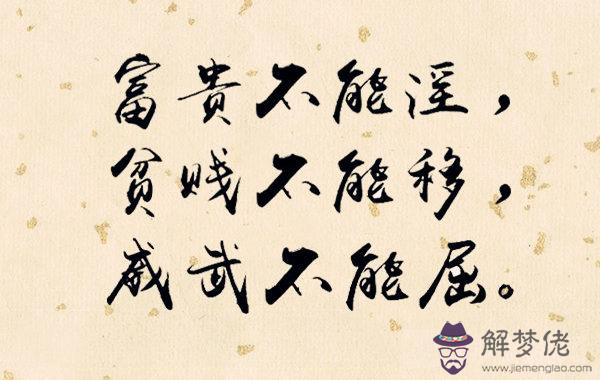 富贵不能淫，
贫贱不能移，
威武不能屈。
解梦佬
www.jiemenglao.com